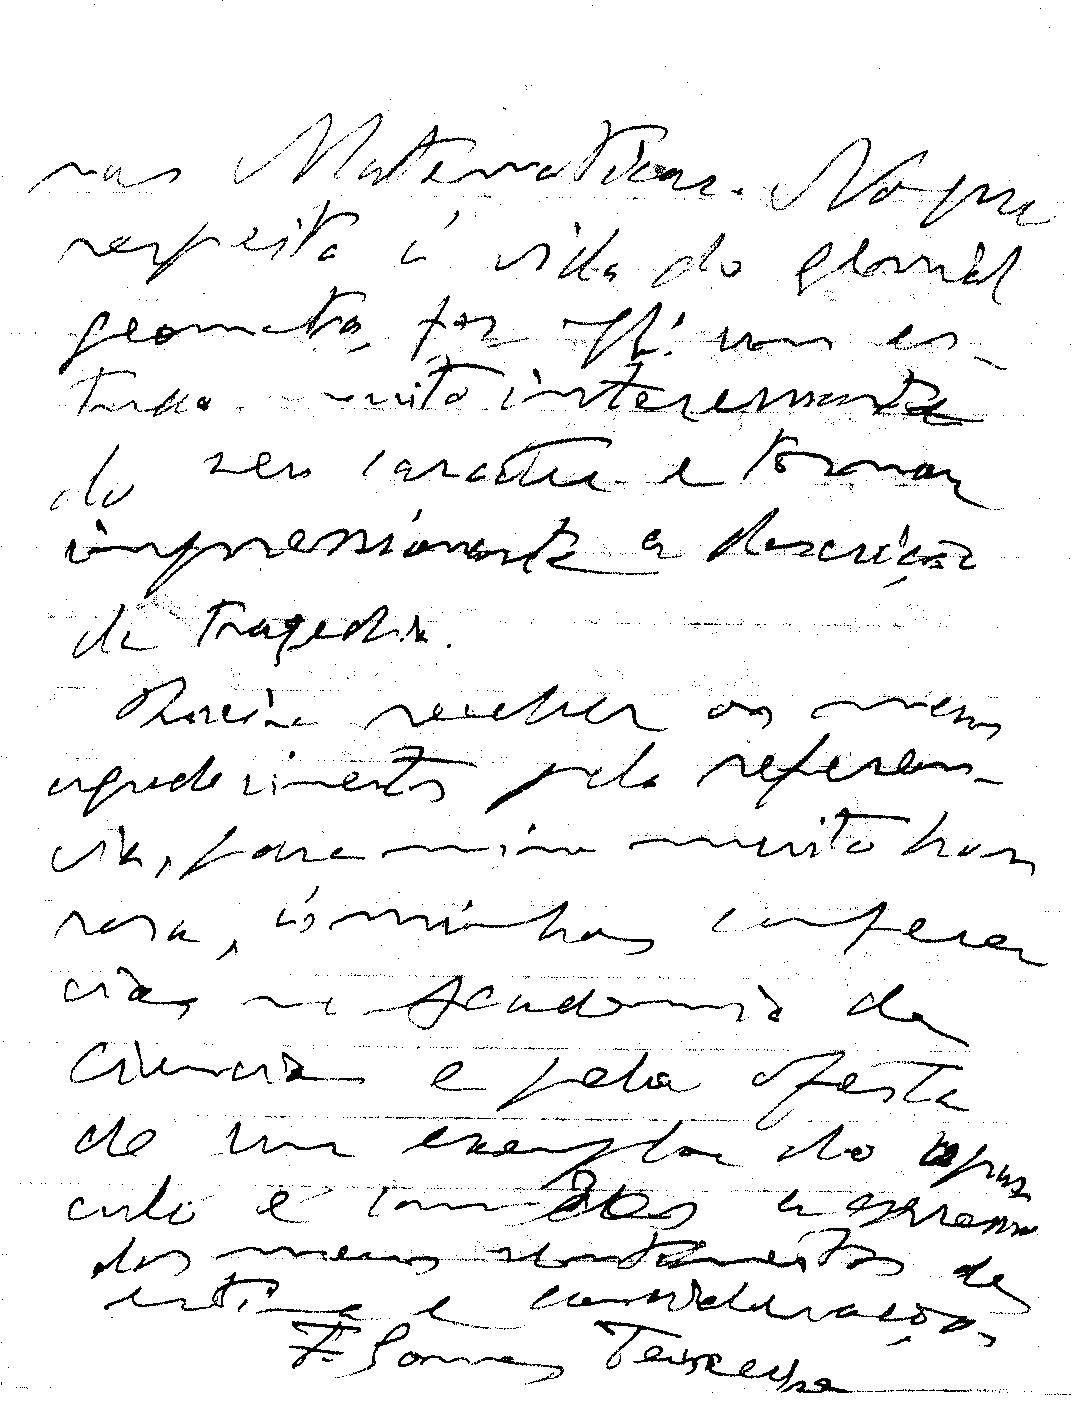 nas Mathematicas. No que
respeita á vida do genial
geometra, fez V. um es-
tudo muito interessante
do seu caracter e tornou
impressionante a descrição
da tragedia.
Queira receber os meus
agradecimentos pela referen-
cia, para mim muito hon
rosa, ás minhas conferen
cias na Academia das
Ciencias e pela oferta
de um exemplar do opus
culo e com eles a expressão
dos meus sentimentos de
estima e consideração
F. Gomes Teixeira